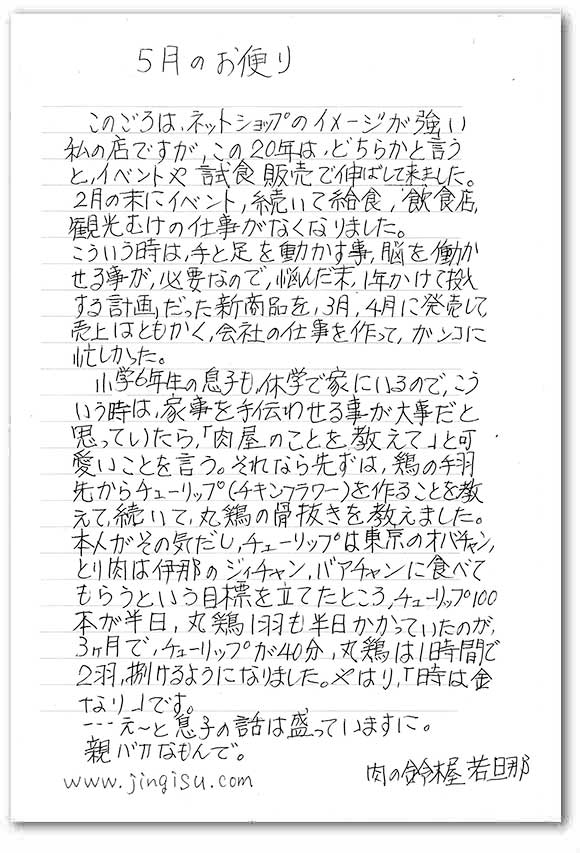 5月のお便り
このごろは、ネットショップのイメージが強い
私の店ですが、この20年は、どちらかと言う
と、イベントや試食販売で伸ばして来ました。
2月の末にイベント,続いて給食,飲食店,
観光むけの仕事がなくなりました。
こういう時は,手と足を動かす事,脳を働か
せる事が,必要なので,悩んだ末,「1年かけて投入
する計画」だった新商品を,3月,4月に発売して
売上はともかく,会社の仕事を作って,ガンコに
忙しかった。
小学6年生の息子も,休学で家にいるので,こう
いう時は,家事を手伝わせる事が大事だと
思っていたら,「肉屋のことを教えて」と可
愛いことを言う。それなら先ずは,鶏の手羽
先からチューリップ(チキンフラワー)を作ることを教
えて,続いて,丸鶏の骨抜きを教えました。
本人がその気だし,チューリップは東京のオバチャン,
とり肉は伊那のジィチャン,バアチャンに食べて
もらうという目標を立てたところ,チューリップ100
本が半日,丸鶏1羽も半日かかっていたのが,
3ヶ月で,チューリップが40分,丸鶏は1時間で
2羽,捌けるようになりました。やはり,「時は金
なり」です。
---え〜と息子の話は盛っていますに。
親バカなもんで。
www.jingisu.com
肉の鈴木屋 若旦那